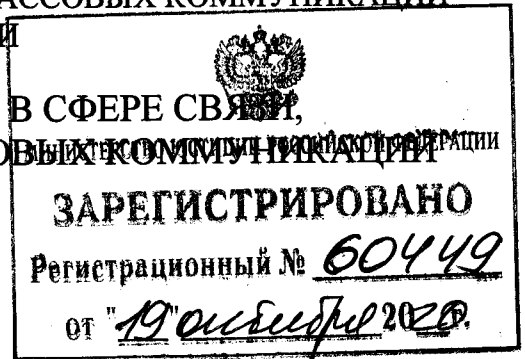 АССОВЫХ КОММУНИКАЦИЙ
И
В СФЕРЕ СВЯЗИ,
ОВЫХ КОММУНИКАЦИЙ
МИНИСТЕРСТВО ЮСТИЦИИ РОССИЙСКОЙ ФЕДЕРАЦИИ
ЗАРЕГИСТРИРОВАНО
Регистрационный № 60449
от "19" октября 2020.